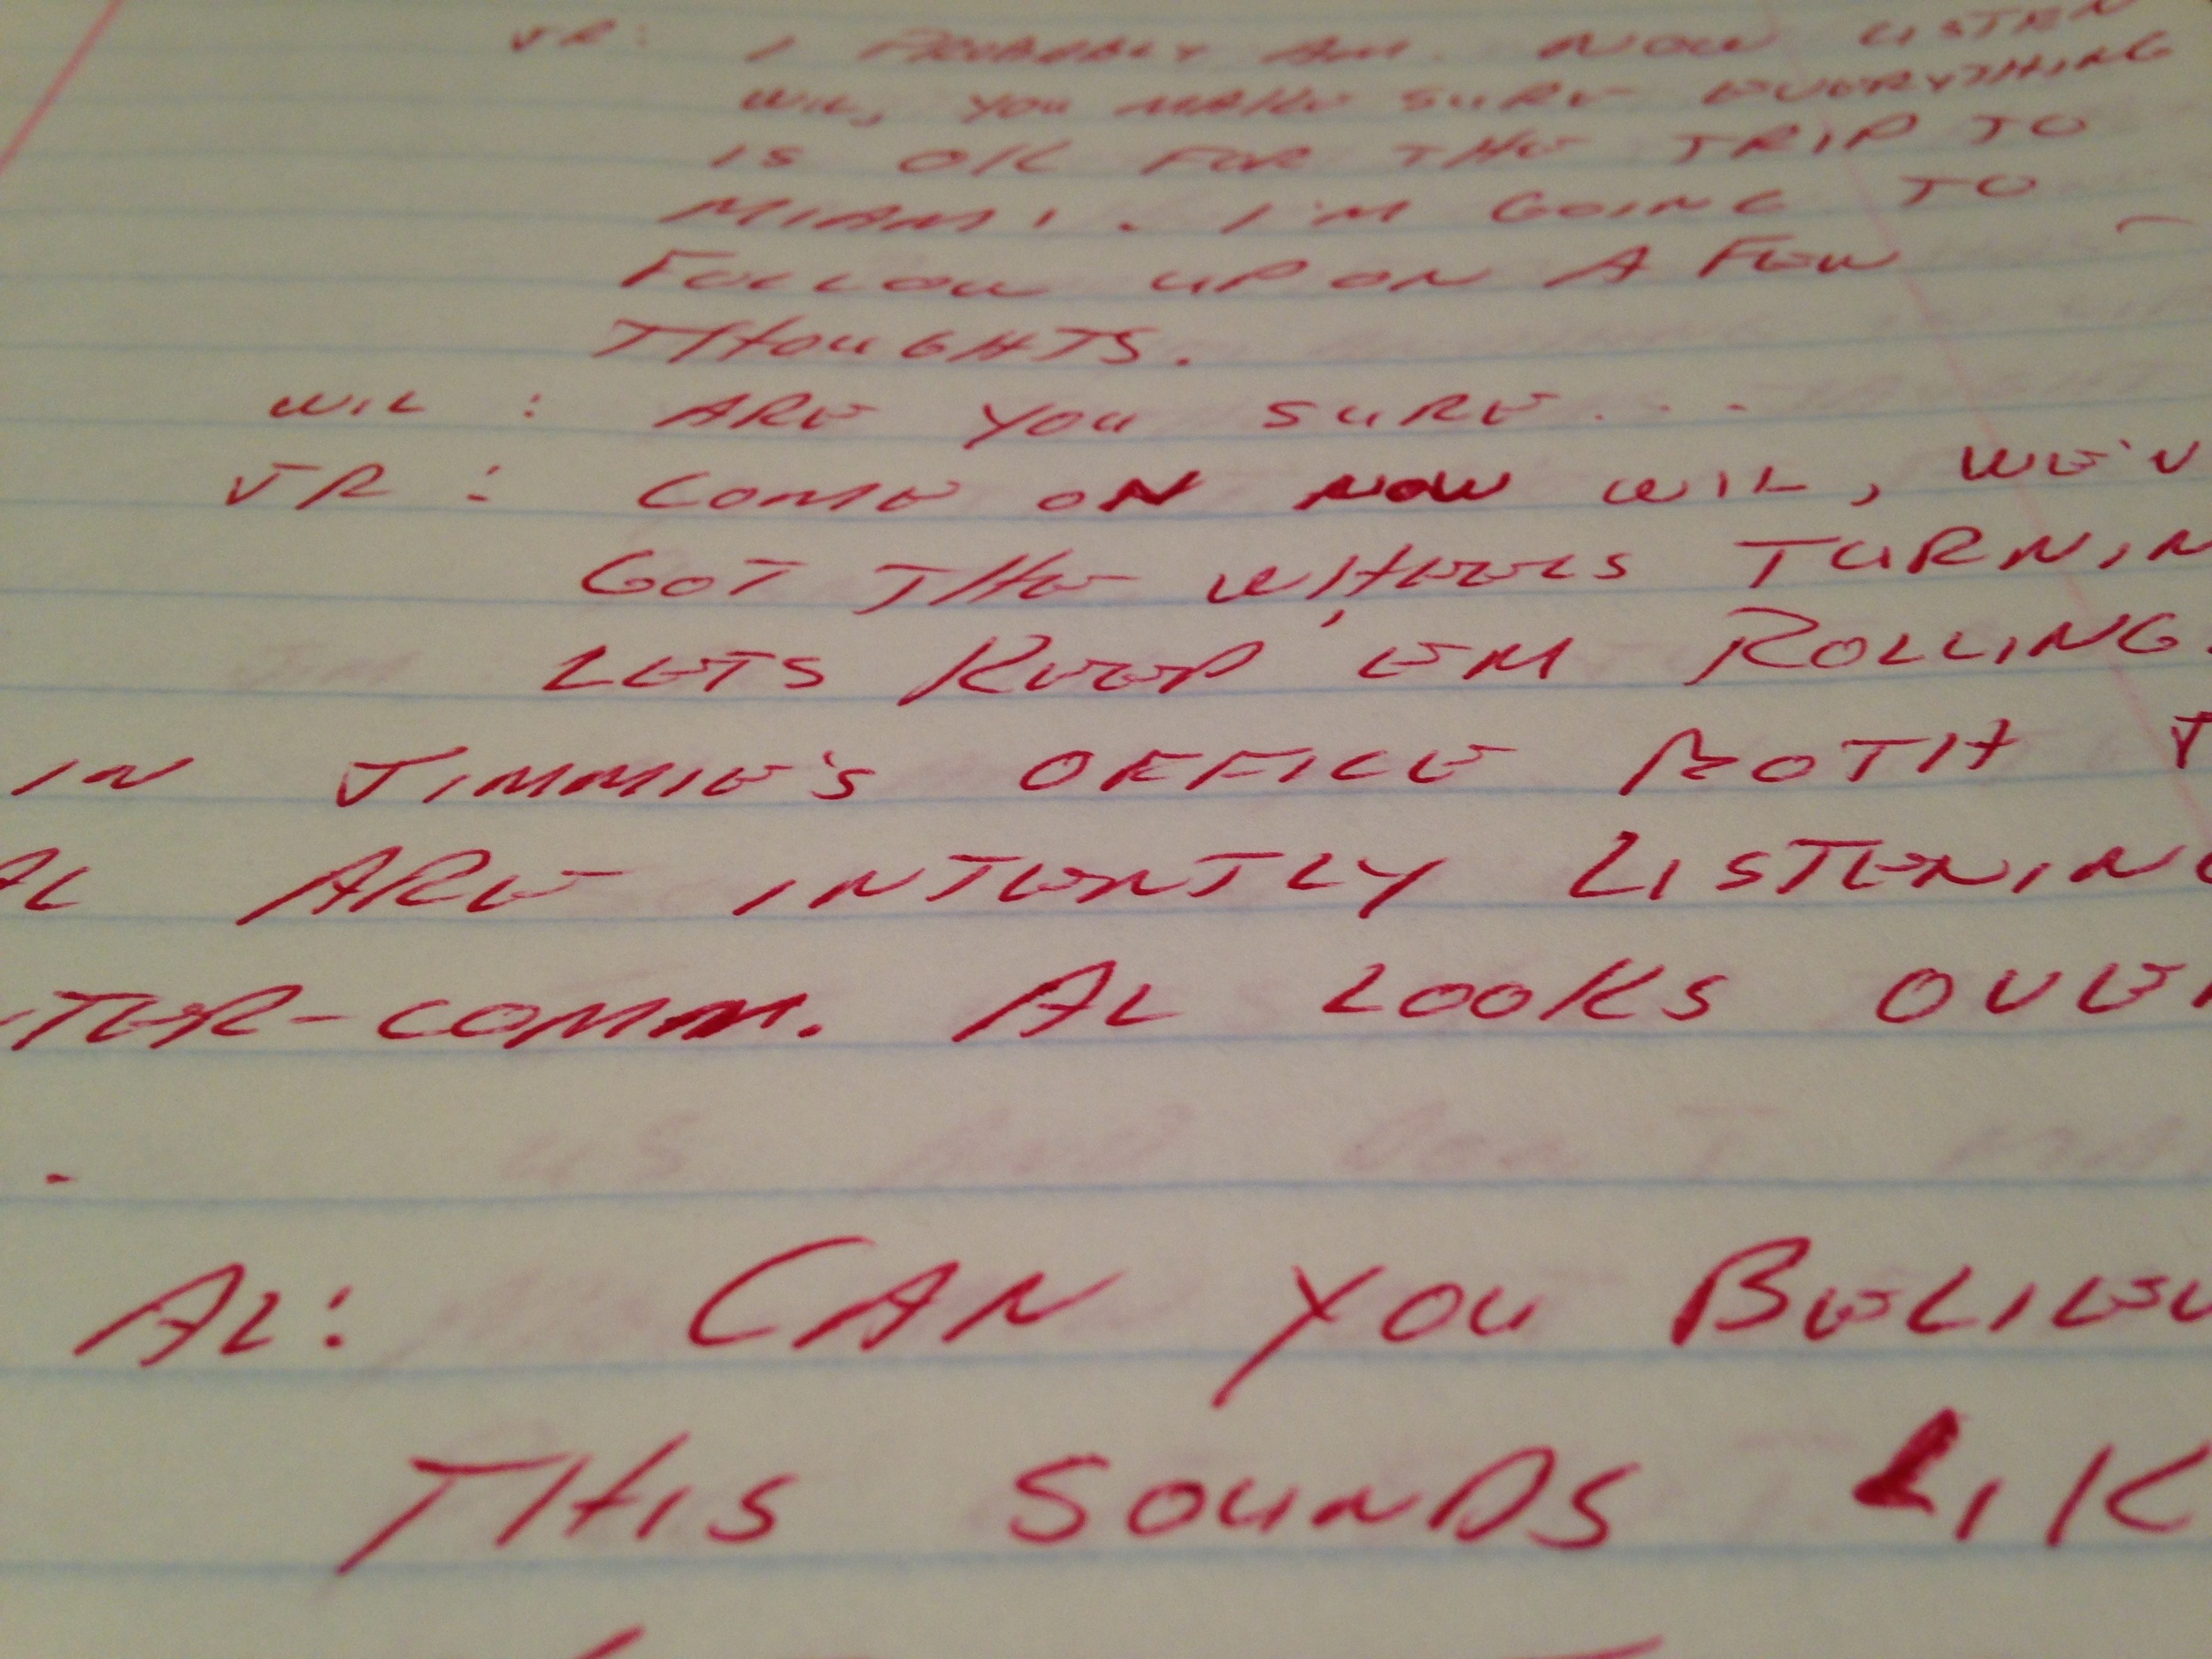 JR: I PROBABLY AM. NOW LISTEN
WIL, YOU MAKE SURE EVERYTHING
IS OK FOR THE TRIP TO
MIAMI. I'M GOING TO
FOLLOW UP ON A FEW
THOUGHTS.
WIL: ARE YOU SURE...
JR: COME ON NOW WIL, WE'V
GOT THE WHEELS TURNIN
LETS KEEP 'EM ROLLING.
IN JIMMIE'S OFFICE BOTH
AL ARE INTENTLY LISTENING
TER-COMM. AL LOOKS OVER
.
AL: CAN YOU BELIEV
THIS SOUNDS LIK